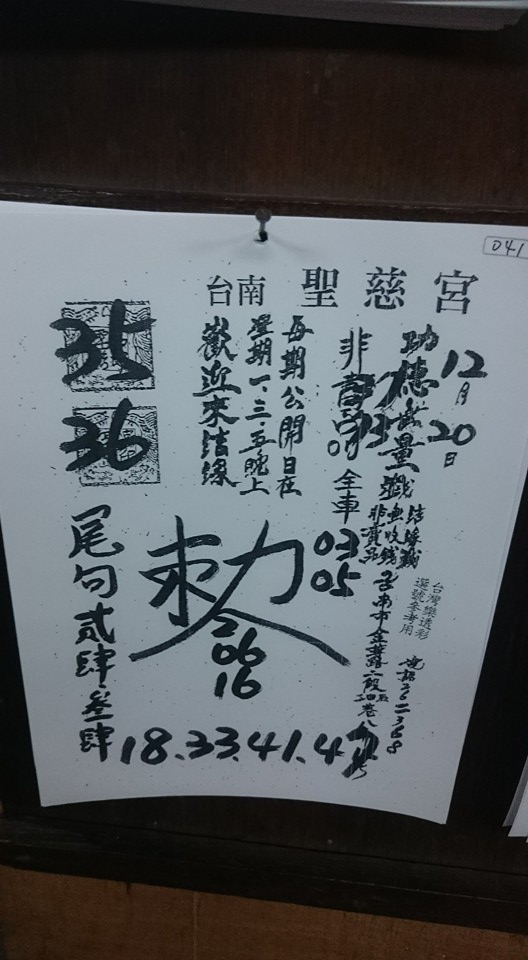 041
台南 聖慈宮
12月20日
功德無量
非賣品
每期公開日在
星期一.三.五晚上
歡迎來結緣
35
36
全車
03
05
結緣籤
無收錢
非賣品
台灣樂透彩
選號參考用
台南市金華路
敕令
06
16
尾句貳肆.叁肆
18.33.41.4